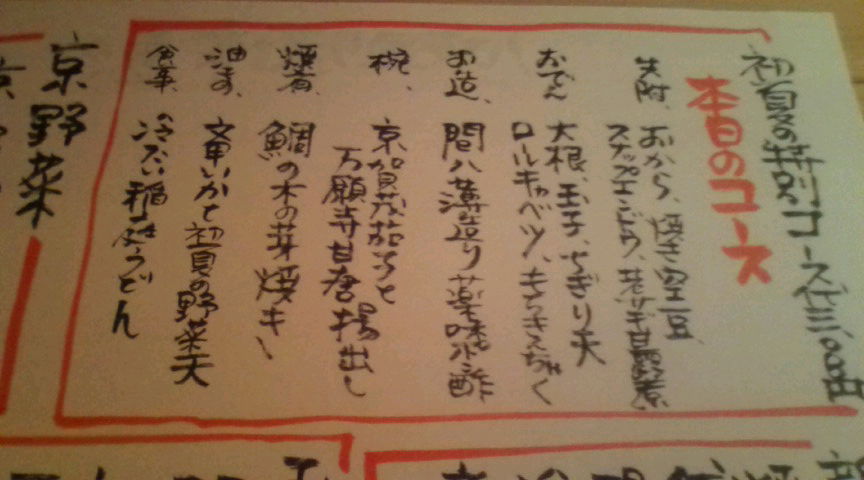 初夏の特別コース
本日のコース
先附、おから、焼き空豆、
スナップエンドウ、
おでん 大根、玉子、ちぎり天
ロールキャベツ、もちきんちゃく
お造、間八薄造り薬味ポン酢
椀、京賀茂茄子と
万願寺甘唐揚出し
焼肴、鯛の木の芽焼キ
油もの、文甲いかと初夏の野菜天
食事、冷たい稲庭うどん
京野菜